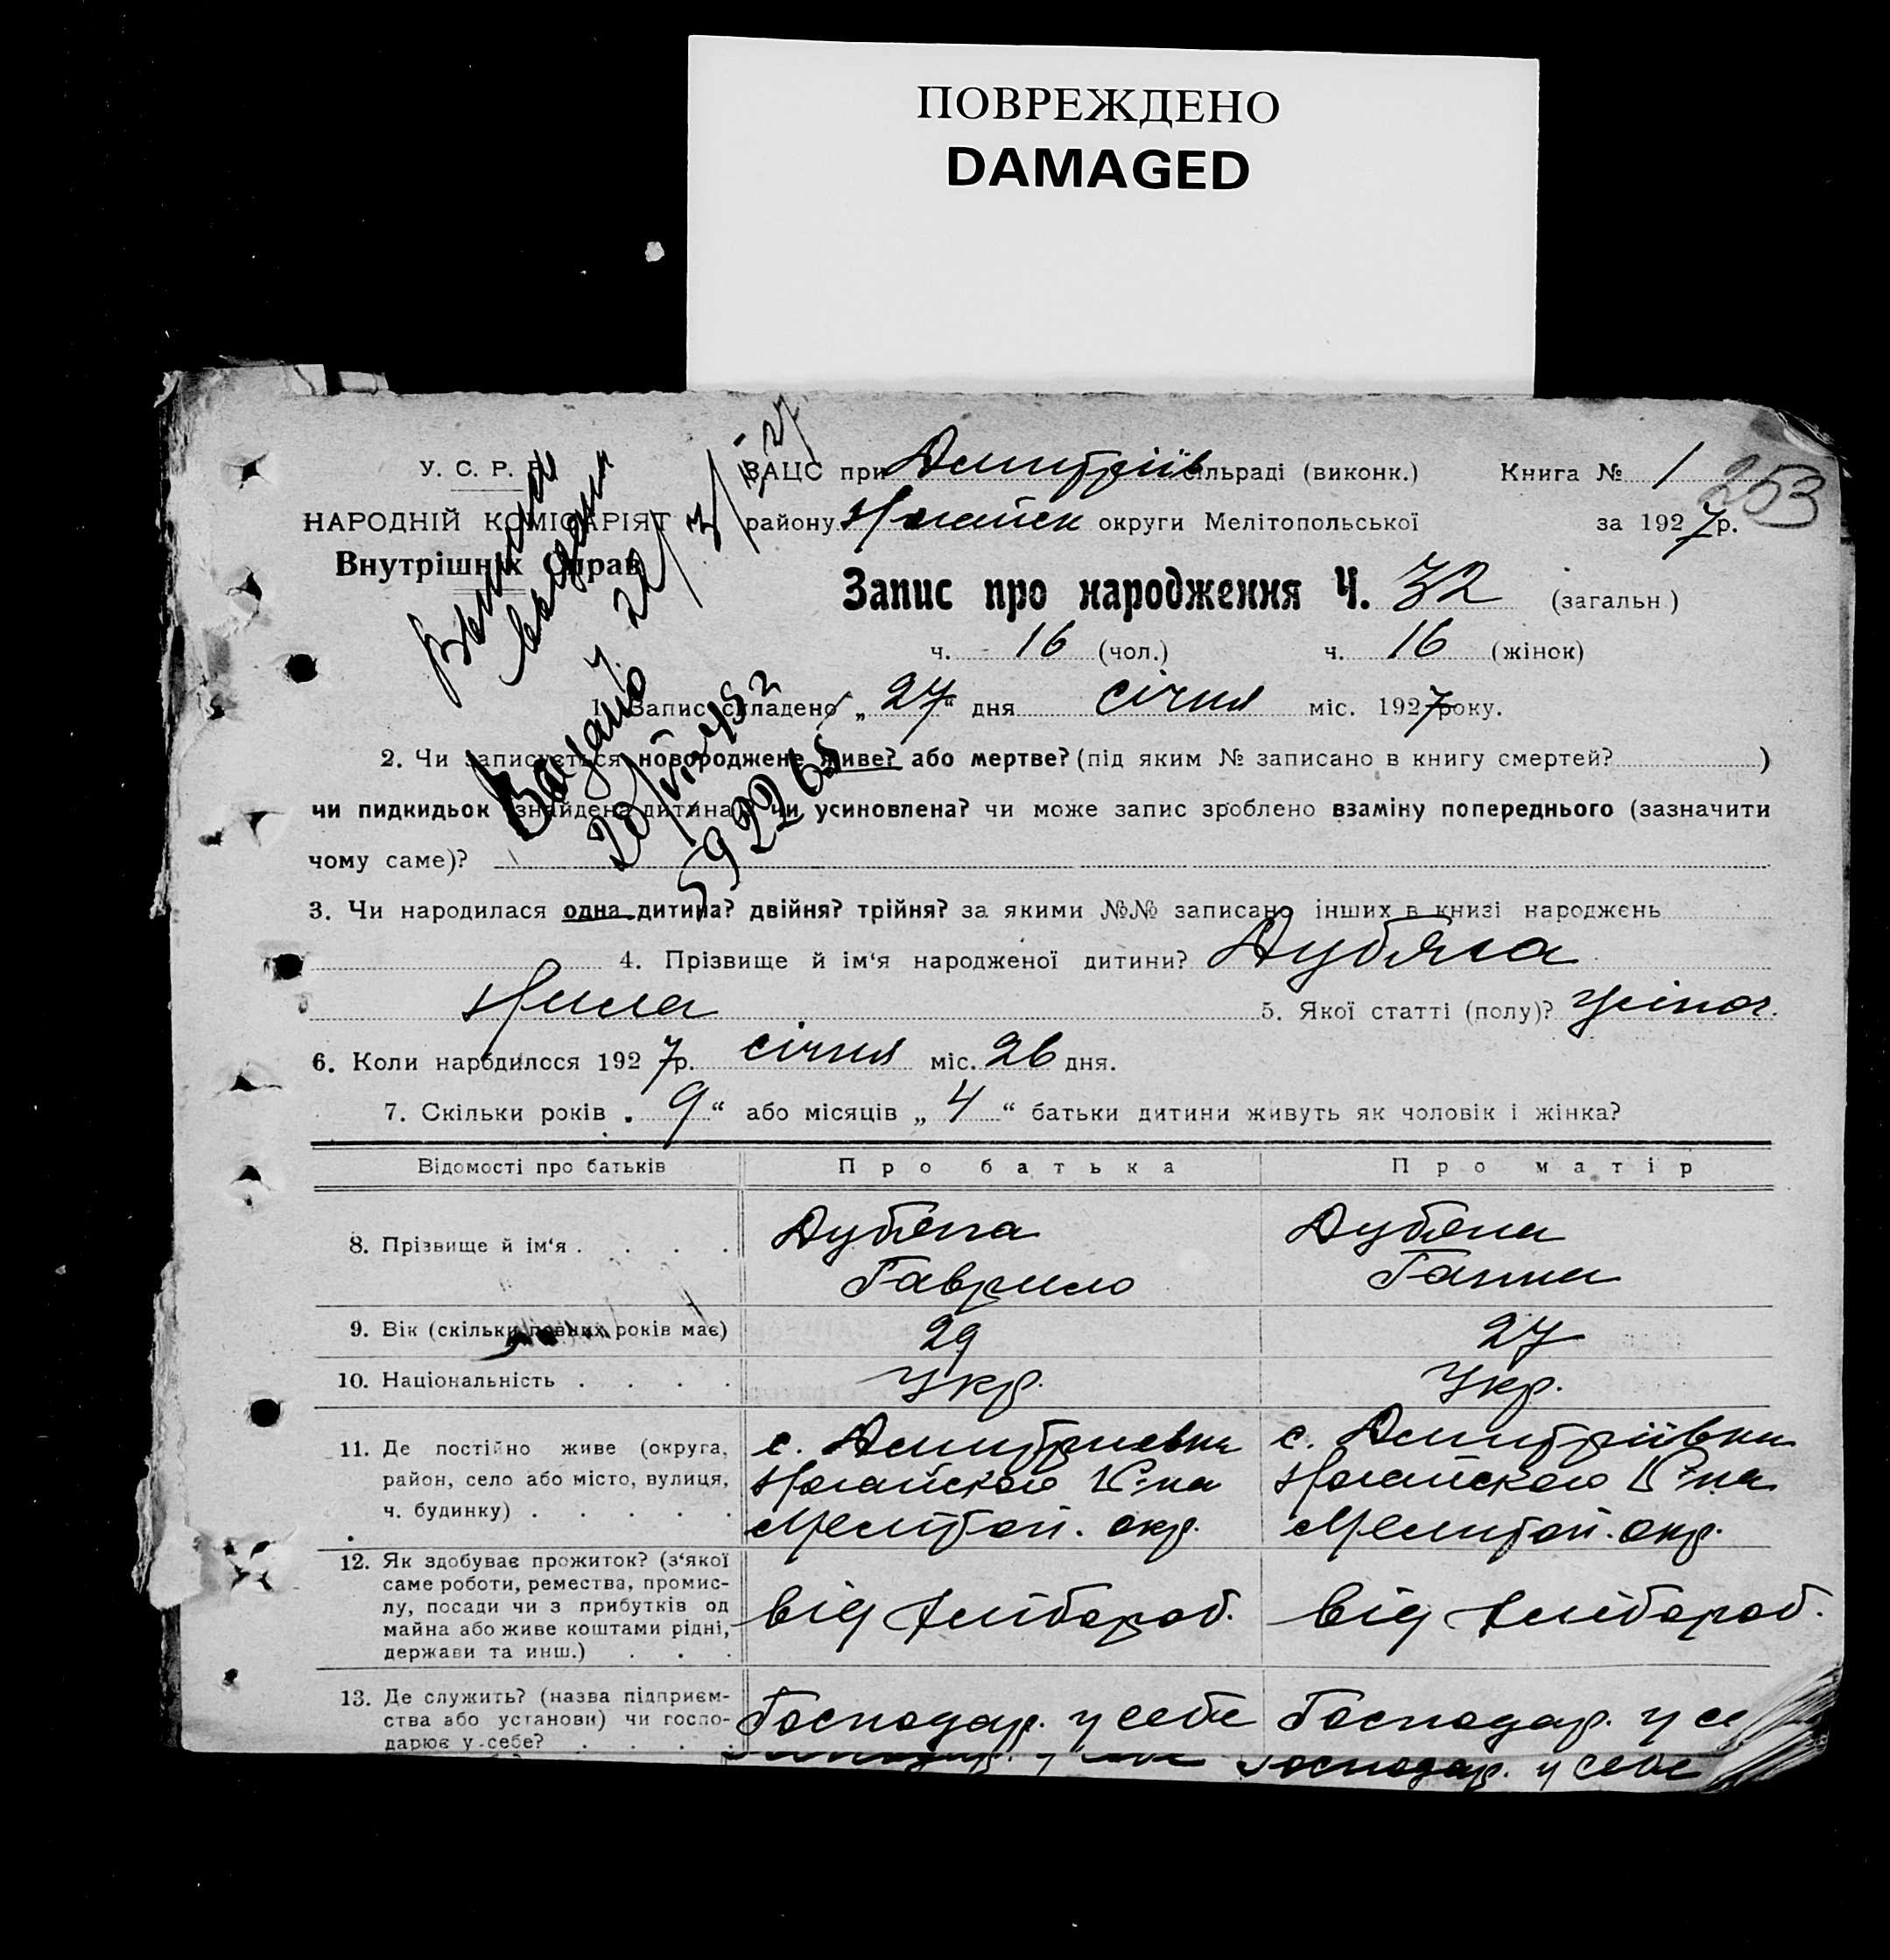 ПОВРЕЖДЕНО
DAMAGED
У. С. Р. Р.
НАРОДНІЙ КОМІСАРІЯТ
Внутрішніх Справ
ЗАЦС при Дмитріїв сільраді (виконк.) Книга № 1
253
району Ногайск округи Мелітопольської за 1927р.
Запис про народження Ч. 32 (загальн.)
ч. 16 (чол.) ч. 16 (жінок)
1. Запис складено „27“ дня січня міс. 1927 року.
2. Чи записується новороджене живе? або мертве? (під яким № записано в книгу смертей? )
чи пидкидьок (знайдена дитина)? чи усиновлена? чи може запис зроблено взаміну попереднього (зазначити
чому саме)?
3. Чи народилася одна дитина? двійня? трійня? за якими №№ записано інших в книзі народжень
4. Прізвище й ім‘я народженої дитини? Дубяга
Нила 5. Якої статті (полу)? жіноч.
6. Коли народилося 1927р. січня міс. 26 дня.
7. Скільки років „9“ або місяців „4“ батьки дитини живуть як чоловік і жінка?
Відомості про батьків Про батька Про матір
8. Прізвище й ім‘я . . . . Дубяга Дубяга
Гаврило Ганна
9. Вік (скільки повних років має) 29 27
10. Національність . . . . Укр. Укр.
11. Де постійно живе (округа, с. Дмитриевка с. Дмитріївка
район, село або місто, вулиця, Ногайского Р-на Ногайского Р-на
ч. будинку) . . . . . Мелітоп. окр. Мелитоп. окр.
12. Як здобуває прожиток? (з‘якої
саме роботи, ремества, промис-
лу, посади чи з прибутків од від хлібороб. від хлібороб.
майна або живе коштами рідні,
держави та инш.) . . .
13. Де служить? (назва підприєм-
ства або установи) чи госпо- Господар. у себе Господар. у се
дарює у себе? . . . .
Господар. у себе